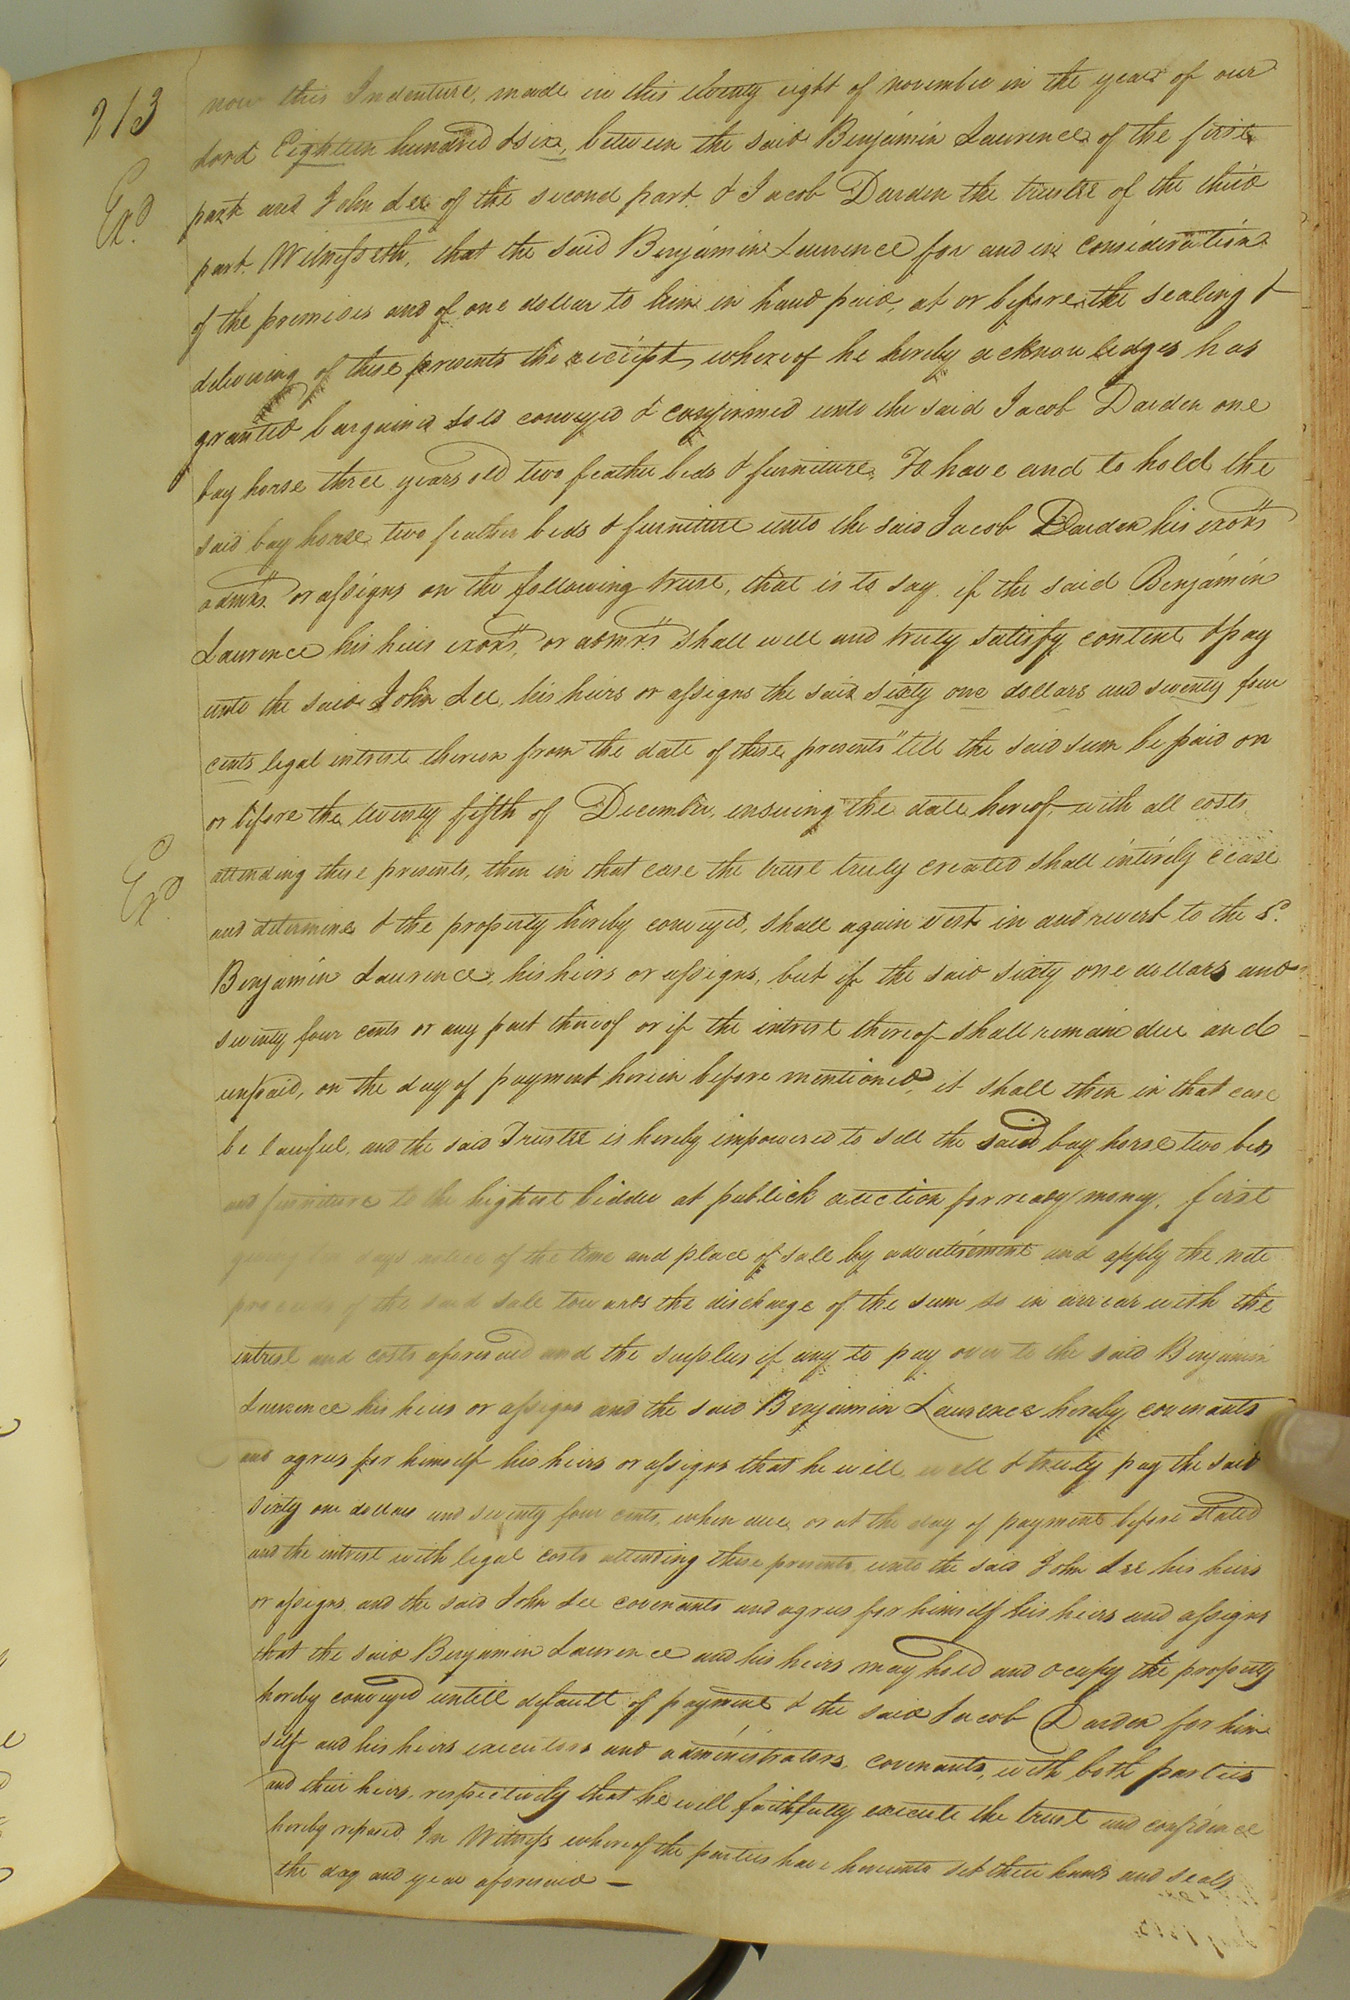 213
now this Indenture, made in this twenty eight of november in the year of our
Lord Eighteen hundred & six, between the said Benjamin Laurence of the first
Exd
part and John Lee of the second part & Jacob Darden the trustee of the third
part. Witnesseth, that the said Benjamin Laurence for and in consideration
of the premises and of one dollar to him in hand paid, at or before the sealing &
delivering of these presents the reciept whereof he hereby acknowledges has
granted bargained sold conveyed & confirmed unto the said Jacob Darden one
bay horse three years old two feather beds & furniture, To have and to hold the
said bay horse two feather beds & furniture unto the said Jacob Darden his exors
admrs or assigns on the following trust, that is to say if the said Benjamin
Laurence his heirs exors, or admrs shall well and truly satisfy content & pay
unto the said John Lee, his heirs or assigns the said sixty one dollars and seventy four
cents legal intrest thereon from the date of these presents till the said sum be paid on
or before the twenty fifth of December, ensuing the date hereof, with all costs
attending these presents, then in that case the trust truly created shall intirely cease
Exd
and determine & the property hereby conveyed, shall again vest in and revert to the sd.
Benjamin Laurence, his heirs or assigns, but if the said sixty one dollars and
seventy four cents or any part thereof or if the intrest thereof shall remain due and
unpaid, on the day of payment herein before mentioned, it shall then in that case
be lawful, and the said Trustee is hereby impowered to sell the said bay horse two beds
and furniture to the highest bidder at publick auction for ready money, first
giving days notice of the time and place of sale by advertisement and apply the nett
proceeds of the said sale towards the discharge of the sum so in arrear with the
intrest and costs aforesaid and the surplus if any to pay over to the said Benjamin
Laurence his heirs or assigns and the said Benjamin Laurence hereby covenants
and agrees for himself his heirs or assigns that he will well & truly pay the said
sixty one dollars and seventy four cents, when due, or at the day of payment before stated
and the intrest with legal costs attending these presents, unto the said John Lee his heirs
or assigns and the said John Lee covenants and agrees for himself his heirs and assigns
that the said Benjamin Laurence and his heirs may hold and ocupy the property
hereby conveyed untill default of payment & the said Jacob Darden for him
self and his heirs executors and administrators, covenants, with both parties
and their heirs, respectively that he will faithfully execute the trust and confidence
hereby reposed In Witness whereof the parties have hereunto set their hands and seals
the day and year aforesaid —